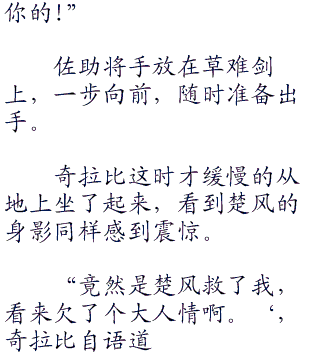 你的！”
佐助将手放在草难剑
上，一步向前，随时准备出
手。
奇拉比这时才缓慢的从
地上坐了起来，看到楚风的
身影同样感到震惊。
“竟然是楚风救了我，
看来欠了个大人情啊。‘，
奇拉比自语道